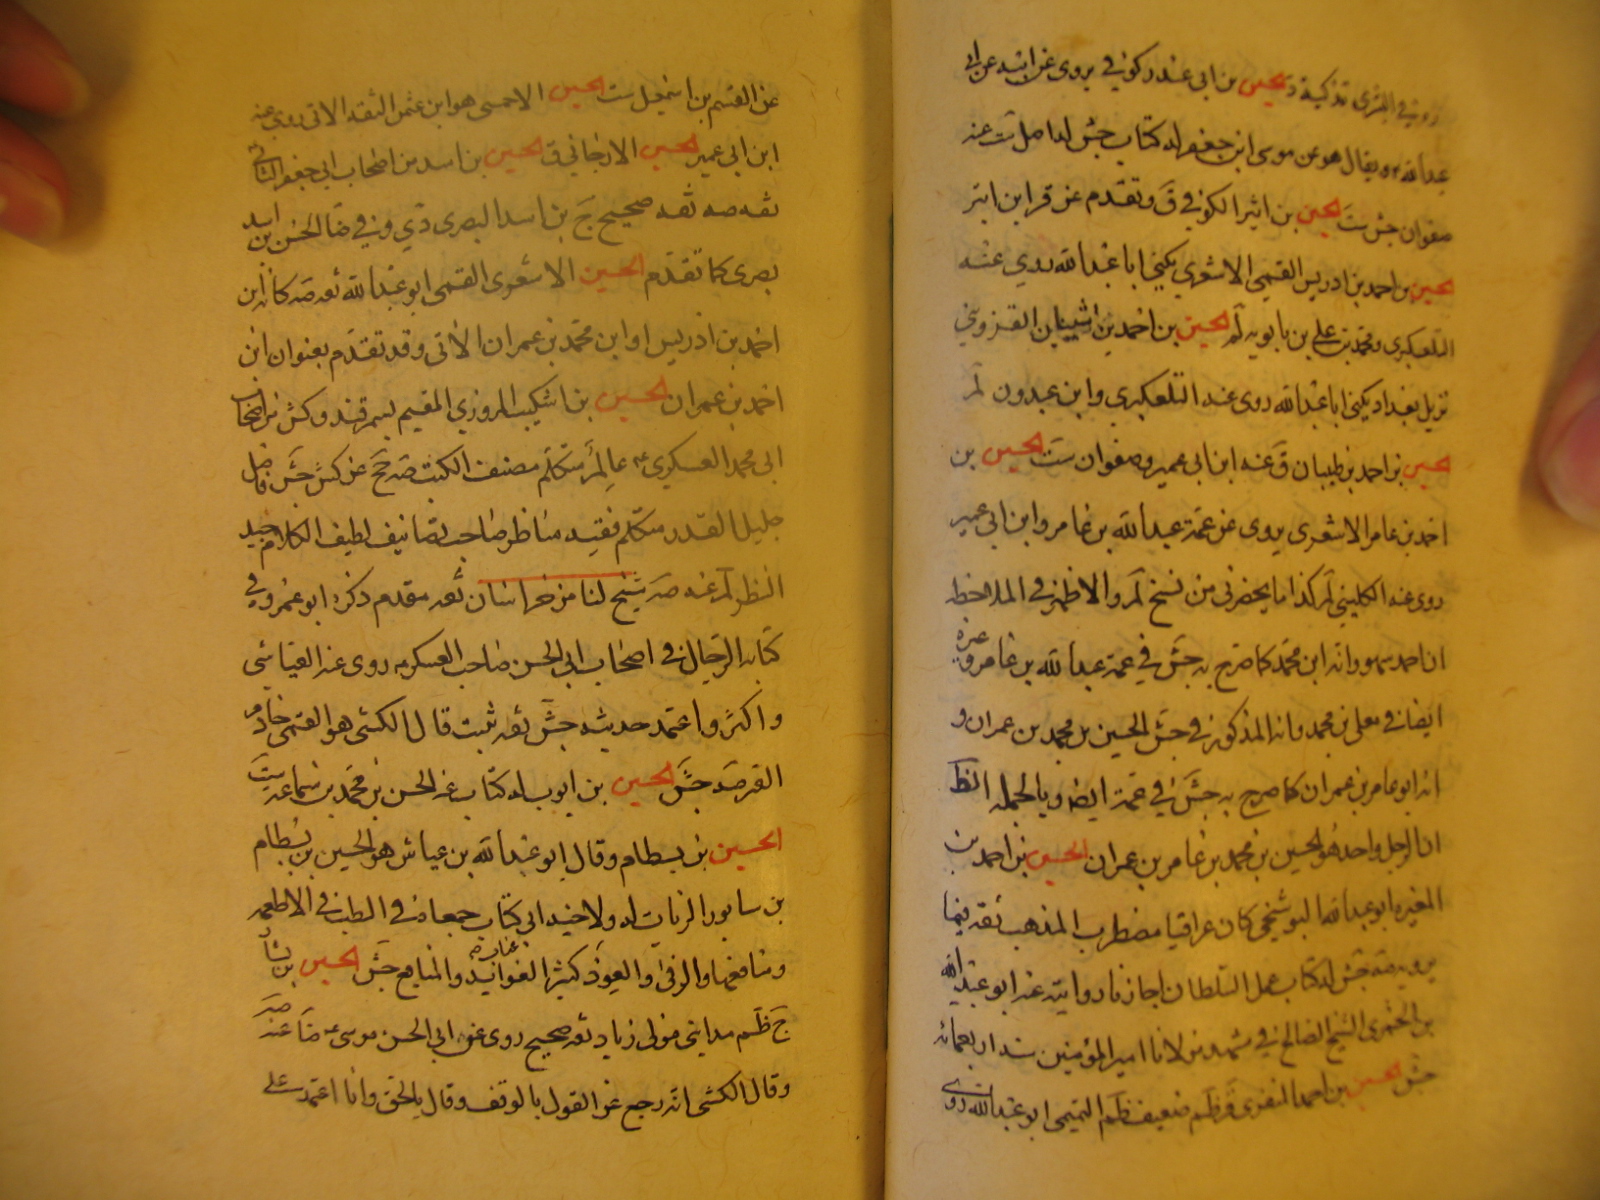 الحسين بن ابي غندر كوفي يروي عن ابيه عن ابي
عبد الله ع ويقال هو عن موسى ابن جعفر له كتاب جش له اصل ست عنه
صفوان جش ست الحسين بن اثير الكوفي ق وتقدم عن قر ابن ابتر
الحسين بن احمد بن ادريس القمي الاشعري يكنى ابا عبد الله روى عنه
التلعكبري ومحمد بن علي بن بابويه لم الحسين بن احمد بن شيبان القزويني
نزيل بغداد يكنى ابا عبد الله روى عنه التلعكبري وابن عبدون لم
الحسين بن احمد بن ظبيان ق عنه ابن ابي عمير وصفوان ست الحسين بن
احمد بن عامر الاشعري يروي عن عمه عبد الله بن عامر وابن ابي عمير
روى عنه الكليني لم كذا ما يحضرني من نسخ لم والاظهر في الملاحظة
ان احمد سهو وانه ابن محمد كما صرح به جش في عمه عبد الله بن عامر وغيره
ايضا في معلى بن محمد وانه المذكور في جش الحسين بن محمد بن عمران و
انه ابو عامر بن عمران كما صرح به جش في عمه ايضا وبالجملة الظ
ان الرجل واحد هو الحسين بن محمد بن عامر بن عمران الحسين بن احمد بن
المغيرة ابو عبد الله البوشنجي كان عراقيا مضطرب المذهب ثقة فيما
يرويه صه جش له كتاب عمل السلطان اجازنا روايته عنه ابو عبد الله
بن الخمري الشيخ الصالح في مشهد مولانا امير المؤمنين سنة اربعمائة
جش الحسين بن احمد المنقري قر ظم ضعيف ظم التميمي ابو عبد الله روى
عن القسم بن اسمعيل ست الحسين الاحمسي هو ابن عثمن الثقة الاتي روى عنه
ابن ابي عمير الحسين الارجاني ق الحسين بن اسد من اصحاب ابي جعفر الثاني
ثقة صه ثقة صحيح ج بن اسد البصري دي وفي ضا الحسن بن اسد
بصري كما تقدم الحسين الاشعري القمي ابو عبد الله ثقة صه كانه ابن
احمد بن ادريس او ابن محمد بن عمران الاتي وقد تقدم بعنوان ابن
احمد بن عمران الحسين بن اشكيب المروزي المقيم بسمرقند وكش من اصحاب
ابي محمد العسكري ع عالم متكلم مصنف الكتب صه جخ عن كش جش فاضل
جليل القدر متكلم فقيه مناظر صاحب تصانيف لطيف الكلام جيد
النظر لم عنه صه شيخ لنا من خراسان ثقة مقدم ذكره ابو عمرو في
كتابه الرجال في اصحاب ابي الحسن صاحب العسكر ع روى عنه العياشي
واكثر واعتمد حديثه جش ثقة ثبت قال الكشي هو القمي خادم
القبر صه جش الحسين بن ايوب له كتاب عنه الحسن بن محمد بن سماعة ست
الحسين بن بسطام وقال ابو عبد الله بن عياش هو الحسين بن بسطام
بن سابور الزيات له ولاخيه ابي عتاب كتاب جمعاه في الطب في الاطعمة
ومنافعها والرقى والعوذ كثير الفوائد والمنافع جش الحسين بن بشار
ج ظم مدايني مولى زياد ثقة صحيح روى عن ابي الحسن موسى ع ضا عنه صه
وقال الكشي انه رجع عن القول بالوقف وقال بالحق وانا اعتمد على